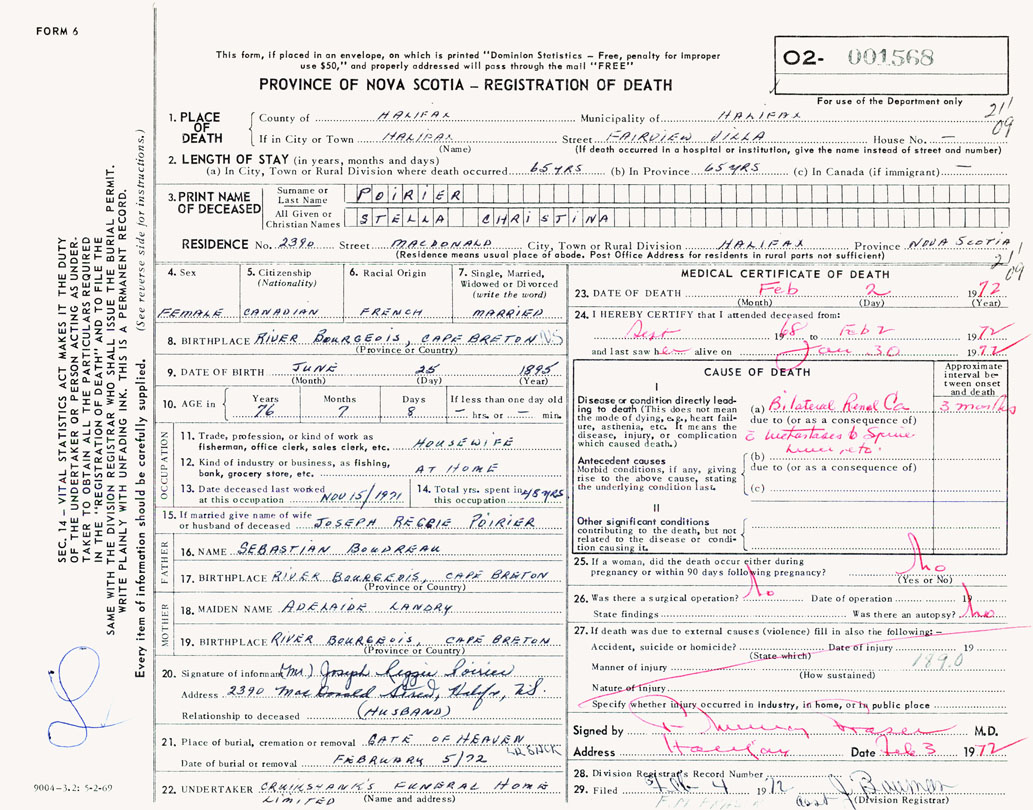 FORM 6
This form, if placed in an envelope, on which is printed "Dominion Statistics – Free, penalty for improper
use $50," and properly addressed will pass through the mail "FREE"
PROVINCE OF NOVA SCOTIA – REGISTRATION OF DEATH
O2- 001568
For use of the Department only
21 09
1. PLACE OF DEATH
County of HALIFAX Municipality of HALIFAX
If in City or Town HALIFAX Street FAIRVIEW VILLA House No. —
(Name) (If death occurred in a hospital or institution, give the name instead of street and number)
2. LENGTH OF STAY (in years, months and days)
(a) In City, Town or Rural Division where death occurred 65 YRS (b) In Province 65 YRS (c) In Canada (if immigrant) —
3. PRINT NAME OF DECEASED
Surname or Last Name POIRIER
All Given or Christian Names STELLA CHRISTINA
RESIDENCE No. 2390 Street MACDONALD City, Town or Rural Division HALIFAX Province NOVA SCOTIA
(Residence means usual place of abode. Post Office Address for residents in rural parts not sufficient)
21 09
4. Sex FEMALE
5. Citizenship (Nationality) CANADIAN
6. Racial Origin FRENCH
7. Single, Married, Widowed or Divorced (write the word) MARRIED
8. BIRTHPLACE RIVER BOURGEOIS, CAPE BRETON NS
(Province or Country)
9. DATE OF BIRTH JUNE 25 1895
(Month) (Day) (Year)
10. AGE in Years 76 Months 7 Days 8 If less than one day old — hrs. or — min.
OCCUPATION
11. Trade, profession, or kind of work as
fisherman, office clerk, sales clerk, etc. HOUSEWIFE
12. Kind of industry or business, as fishing,
bank, grocery store, etc. AT HOME
13. Date deceased last worked
at this occupation NOV 15/1971
14. Total yrs. spent in
this occupation 48 YRS
15. If married give name of wife
or husband of deceased JOSEPH REGGIE POIRIER
FATHER
16. NAME SEBASTIAN BOUDREAU
17. BIRTHPLACE RIVER BOURGEOIS, CAPE BRETON
(Province or Country)
MOTHER
18. MAIDEN NAME ADELAIDE LANDRY
19. BIRTHPLACE RIVER BOURGEOIS, CAPE BRETON
(Province or Country)
20. Signature of informant (Mr.) Joseph Reggie Poirier
Address 2390 MacDonald Street, Halifx, N.S.
Relationship to deceased (HUSBAND)
21. Place of burial, cremation or removal GATE OF HEAVEN
Date of burial or removal FEBRUARY 5/72
22. UNDERTAKER CRUIKSHANK'S FUNERAL HOME LIMITED
(Name and address)
MEDICAL CERTIFICATE OF DEATH
23. DATE OF DEATH Feb 2 1972
(Month) (Day) (Year)
24. I HEREBY CERTIFY that I attended deceased from:
Sept 1968 to Feb 2 1972
and last saw her alive on Jan 30 1972
CAUSE OF DEATH
Approximate interval between onset and death
I
Disease or condition directly leading to death (This does not mean the mode of dying, e.g., heart failure, asthenia, etc. It means the disease, injury, or complication which caused death.)
(a) Bilateral Renal Ca 3 months
due to (or as a consequence of)
c̄ metastases to Spine
Liver, etc.
Antecedent causes
Morbid conditions, if any, giving rise to the above cause, stating the underlying condition last.
(b)
due to (or as a consequence of)
(c)
II
Other significant conditions
contributing to the death, but not related to the disease or condition causing it.
25. If a woman, did the death occur either during
pregnancy or within 90 days following pregnancy? no
(Yes or No)
26. Was there a surgical operation? No Date of operation 19
State findings Was there an autopsy? no
27. If death was due to external causes (violence) fill in also the following: –
Accident, suicide or homicide? Date of injury 19
(State which)
189.0
Manner of injury
(How sustained)
Nature of injury
Specify whether injury occurred in industry, in home, or in public place
Signed by Fraser M.D.
Address Halifax Date Feb 3 1972
28. Division Registrar's Record Number
29. Filed Feb 4 1972 J. Bauman
(Division Registrar)
SEC. 14 – VITAL STATISTICS ACT MAKES IT THE DUTY
OF THE UNDERTAKER OR PERSON ACTING AS UNDER-
TAKER TO OBTAIN ALL THE PARTICULARS REQUIRED
IN THE "REGISTRATION OF DEATH" AND TO FILE THE
SAME WITH THE DIVISION REGISTRAR WHO SHALL ISSUE THE BURIAL PERMIT.
WRITE PLAINLY WITH UNFADING INK. THIS IS A PERMANENT RECORD.
Every item of information should be carefully supplied. (See reverse side for instructions.)
9004-3.2: 5-2-69